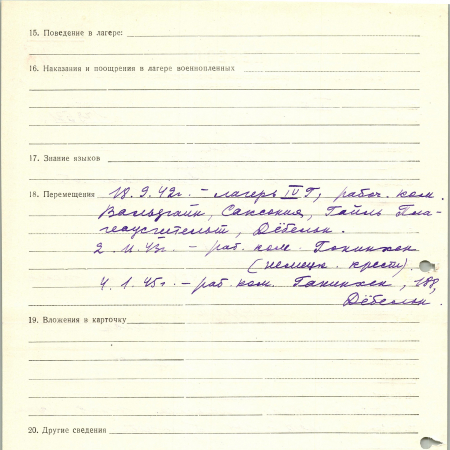 15. Поведение в лагере:
16. Наказания и поощрения в лагере военнопленных
17. Знание языков
18. Перемещения 18.9.42г. – лагерь IV Г, рабоч. ком.
Вальдхайм, Саксония,
Дёбельн.
2. 43г. – раб. ком.
(немецк. крести).
4.1.45г. – раб. ком. Ганинхен, 189,
Дёбельн.
19. Вложения в карточку
20. Другие сведения